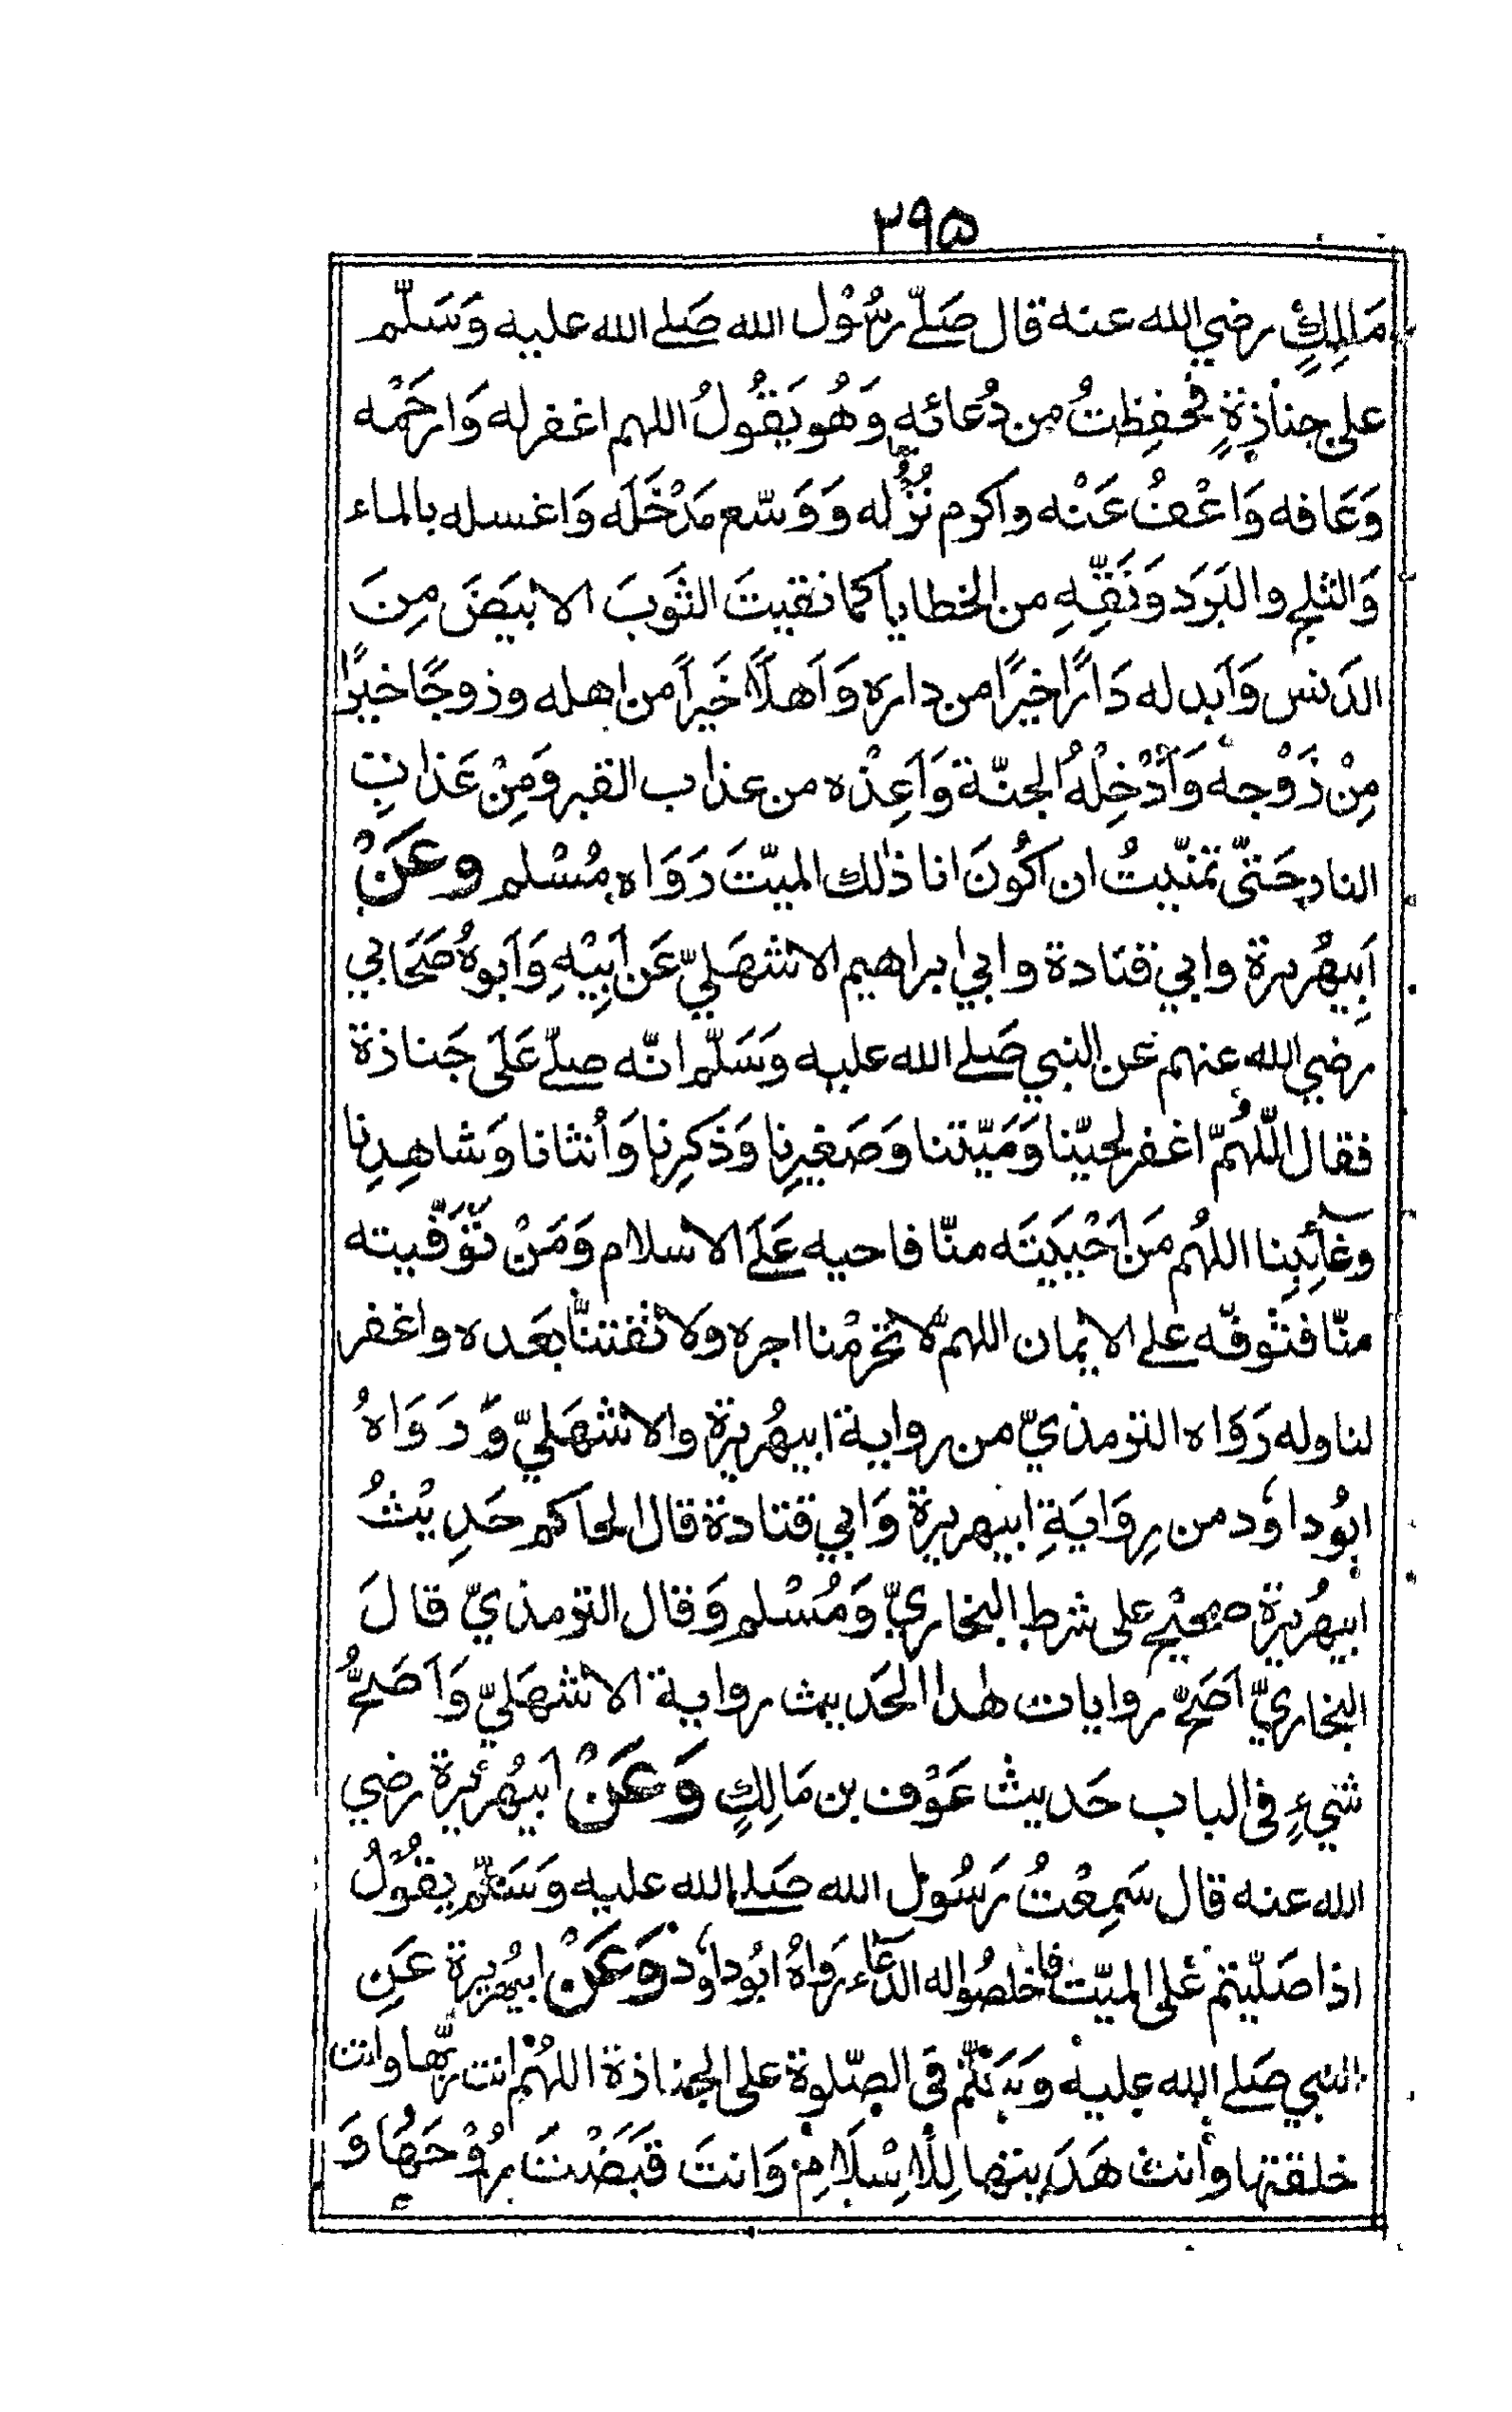 ٢٩٥
مَالِكٍ رضي الله عنه قال صَلّے رسُوْل الله صَلے الله عليه وَسَلّم
على جنازةٍ فحفِظتُ من دُعائه وَهُو يَقُولُ اللهم اغفر له وَارحَمْه
وَعَافه وَاعْفُ عَنْه واكرم نُزُله وَوَسّع مَدْخَلَه وَاغسله بالماء
وَالثلج والبَرَد وَنَقِّهِ من الخطايا كما نقيتَ الثوبَ الابيَضَ مِنَ
الدَنس وَاَبدله دَارًا خيرًا من داره وَاَهلًا خَيراً من اهله وزوجًا خيرًا
مِنْ زَوْجه وَاَدْخِلْهُ الجنّة وَاَعِذْه من عذاب القبر وَمِنْ عَذابِ
النار حَتىّ تمنّيتُ ان اكُونَ انا ذٰلك الميّتَ رَوَاه مُسْلم وعَنْ
اَبيهُريرة وابي قتادة وابي ابراهيم الاشهَليّ عَن اَبِيْهِ وَاَبوهُ صَحَابي
رضي الله عنهم عن النبي صَلے الله عليه وَسَلّم انّه صلّے عَلَى جَنازة
فقال اللّٰهُمّ اغفر لحيّنا وَمَيّتنا وَصَغيرِنا وَذَكرِنا وَاُنثانا وَشاهِدِنا
وغآئبِنا اللهُم مَن اَحْيَيتَه منّا فاحيه عَلَے الاسلام وَمَنْ تَوَفّيته
منّا فتوفّه علے الايمان اللهمّ لا تحرمْنا اجره ولا تفتنّا بعَده واغفر
لنا وله رَوَاه الترمذيّ من رواية ابيهُريرة والاشهَليّ وَرَوَاهُ
ابُو داود من رِوَايَةِ ابيهريرة وَابي قتادة قال الحاكم حَدِيْثُ
اَبيهُريرة صحيْح على شرط البخاريّ وَمُسْلم وَقال الترمذيّ قالَ
البخاريّ اَصَحّ روايات هٰذا الحَديث رواية الاشهَليّ وَاَصَحُّ
شيءٍ في الباب حَديث عَوْف بن مَالِكٍ وَعَنْ اَبيهُريرة رضي
الله عنه قال سَمِعْتُ رَسُول الله صَلے الله عليه وَسَلّم يقُولُ
اذا صَلّيتم عَلى الميّت فاخلصُوا له الدّعاء رَواهُ ابُو داود وَعَنْ ابيهُريرة عَنِ
النبي صَلے الله عليه وَسَلّم في الصّلوة على الجنازة اللهُمّ انت ربّها وانت
خلقتها وانت هَدَيتها لِلْاِسْلَامِ وَانتَ قَبَضْتَ رُوْحَهَا وَ